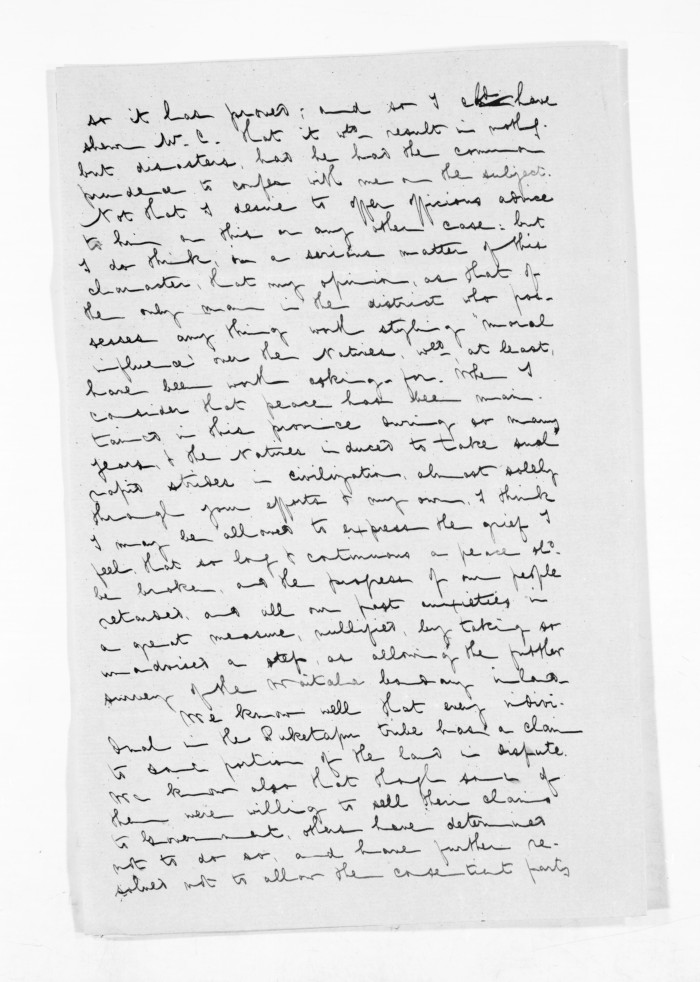 so it has proved; and so I cld have
shewn Mr. C. that it wd. result in nothg.
but disasters, had he had the common
prudence to confer with me on the subject.
Not that I desire to offer officious advice
to him in this or any other case: but
I do think, in a serious matter of this
character, that my opinion, as that of
the only man in the district who pos-
sesses any thing worth styling "moral
influence" over the Natives, wd. at least,
have been worth asking-for. When I
consider that peace has been main-
tained in this province during so many
years, & the Natives induced to take such
rapid strides in civilization, almost solely
through your efforts & my own, I think
I may be allowed to express the grief I
feel, that so long & continuous a peace shd.
be broken, and the progress of our people
retarded, and all our past anxieties in
a great measure, nullified, by taking so
unadvised a step, as allowing the further
survey of the Waitaha boundary inland.
We know well that every indivi-
dual in the Puketapu tribe has a claim
to some portion of the land in dispute.
We know also that though some of
them were willing to sell their claims
to Government, others have determined
not to do so, and have further re-
solved not to allow the consentient party